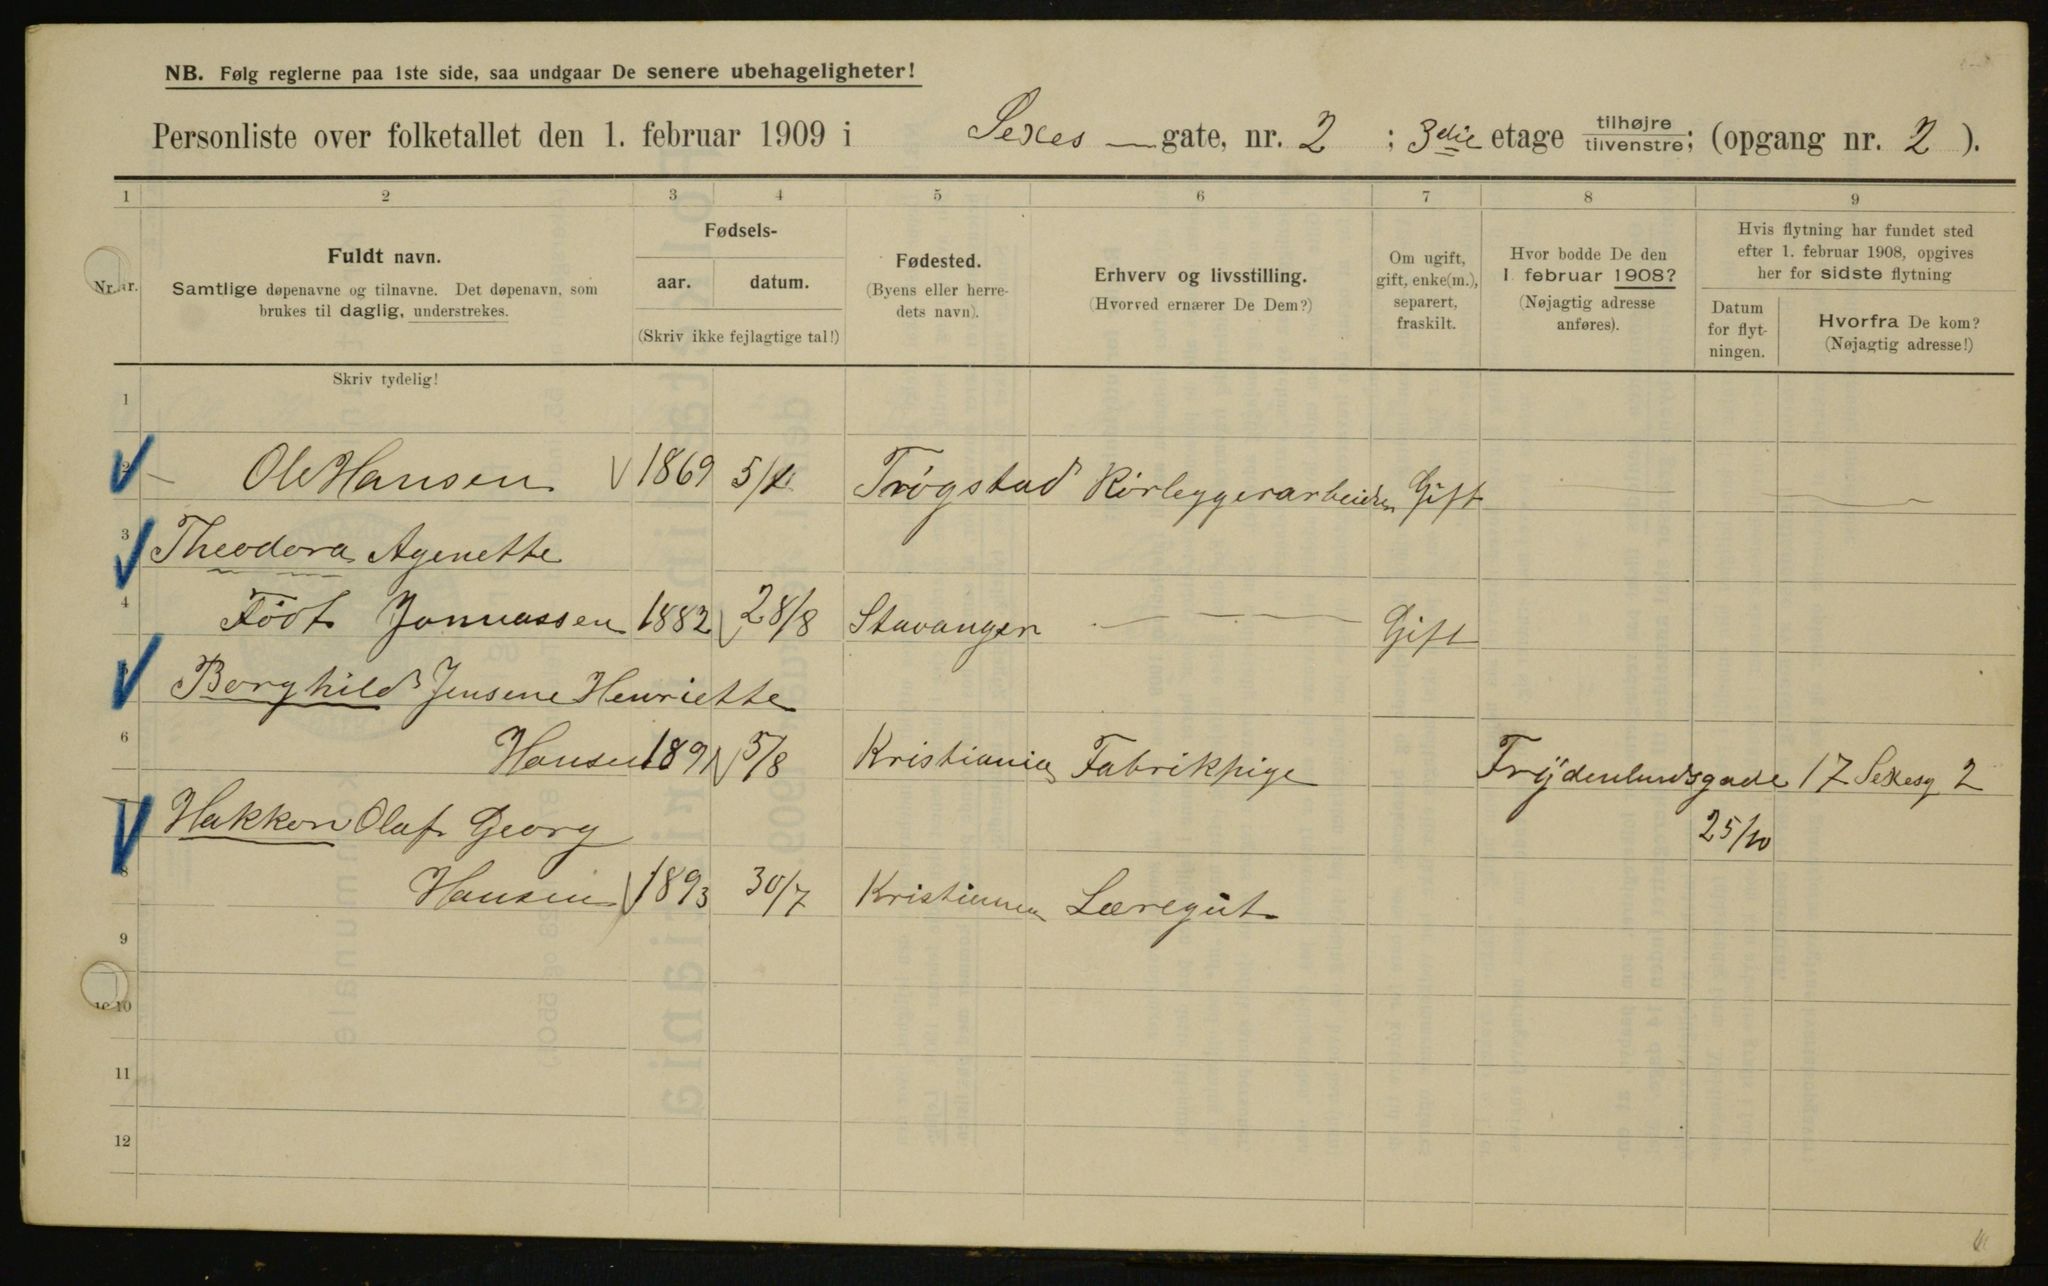 NB. Følg reglerne paa 1ste side, saa undgaar De senere ubehageligheter!
Personliste over folketallet den 1. februar 1909 i Sexes — gate, nr. 2 ; 3die etage tilhøjre/tilvenstre; (opgang nr. 2 ).
1 2 3 4 5 6 7 8 9
Nr.
Fuldt navn.
Samtlige døpenavne og tilnavne. Det døpenavn, som
brukes til daglig, understrekes.
Fødsels-
aar. datum.
(Skriv ikke fejlagtige tal!)
Fødested.
(Byens eller herre-
dets navn).
Erhverv og livsstilling.
(Hvorved ernærer De Dem?)
Om ugift,
gift, enke(m.),
separert,
fraskilt.
Hvor bodde De den
1. februar 1908?
(Nøjagtig adresse
anføres).
Hvis flytning har fundet sted
efter 1. februar 1908, opgives
her for sidste flytning
Datum
for flyt-
ningen.
Hvorfra De kom?
(Nøjagtig adresse!)
Skriv tydelig!
1
2 Ole Hansen 1869 Trøgstad Rørleggerarbeider Gift
3 Theodora Agenette
4 Født Jonnassen 1882 28/8 Stavanger — Gift
5 Borghild Jensene Henriette
6 Hansen 1891 5/8 Kristiania Fabrikpige Frydenlundsgade 17 Sexesg 2
7 Hakkon Olaf Georg 25/10
8 Hansen 1893 30/7 Kristiania Læregut
9
10
11
12